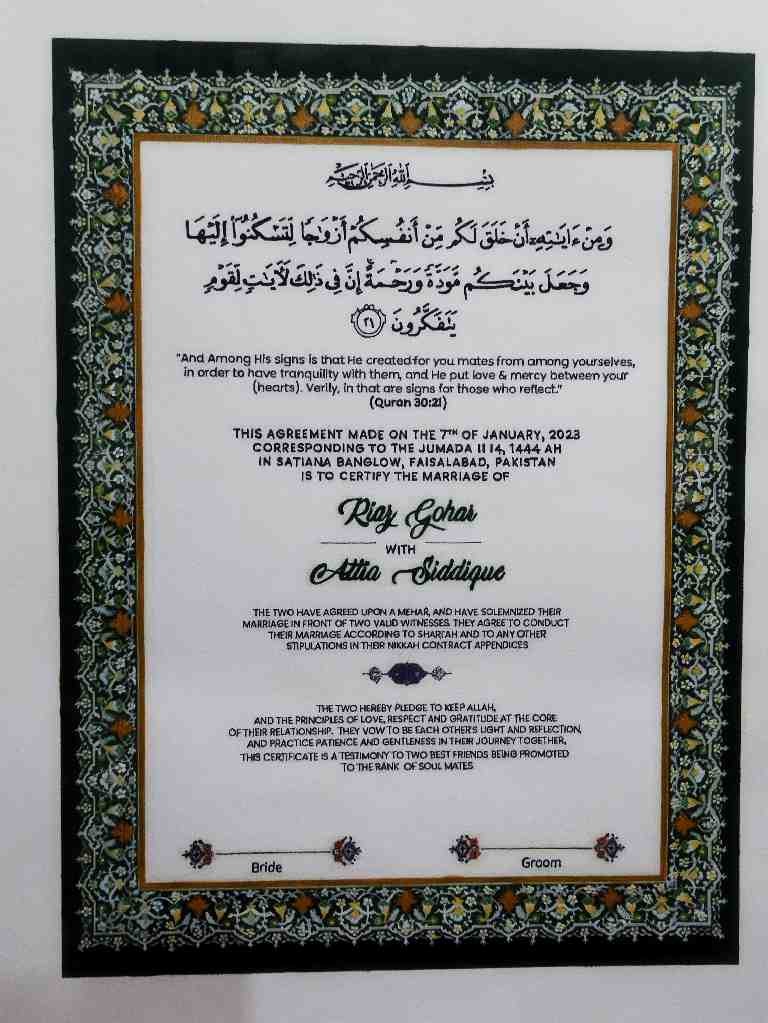 بِسْمِ اللَّهِ الرَّحْمَٰنِ الرَّحِيمِ
وَمِنْ ءَايَٰتِهِۦٓ أَنْ خَلَقَ لَكُم مِّنْ أَنفُسِكُمْ أَزْوَٰجًا لِّتَسْكُنُوٓا۟ إِلَيْهَا
وَجَعَلَ بَيْنَكُم مَّوَدَّةً وَرَحْمَةً إِنَّ فِى ذَٰلِكَ لَءَايَٰتٍ لِّقَوْمٍ
يَتَفَكَّرُونَ ٢١
"And Among His signs is that He created for you mates from among yourselves,
in order to have tranquility with them, and He put love & mercy between your
(hearts). Verily, in that are signs for those who reflect."
(Quran 30:21)
THIS AGREEMENT MADE ON THE 7TH OF JANUARY, 2023
CORRESPONDING TO THE JUMADA II 14, 1444 AH
IN SATIANA BANGLOW, FAISALABAD, PAKISTAN
IS TO CERTIFY THE MARRIAGE OF
Riaz Gohar
WITH
Attia Siddique
THE TWO HAVE AGREED UPON A MEHAR, AND HAVE SOLEMNIZED THEIR
MARRIAGE IN FRONT OF TWO VALID WITNESSES. THEY AGREE TO CONDUCT
THEIR MARRIAGE ACCORDING TO SHARI'AH AND TO ANY OTHER
STIPULATIONS IN THEIR NIKKAH CONTRACT APPENDICES
THE TWO HEREBY PLEDGE TO KEEP ALLAH,
AND THE PRINCIPLES OF LOVE, RESPECT AND GRATITUDE AT THE CORE
OF THEIR RELATIONSHIP. THEY VOW TO BE EACH OTHER'S LIGHT AND REFLECTION,
AND PRACTICE PATIENCE AND GENTLENESS IN THEIR JOURNEY TOGETHER,
THIS CERTIFICATE IS A TESTIMONY TO TWO BEST FRIENDS BEING PROMOTED
TO THE RANK OF SOUL MATES
Bride
Groom